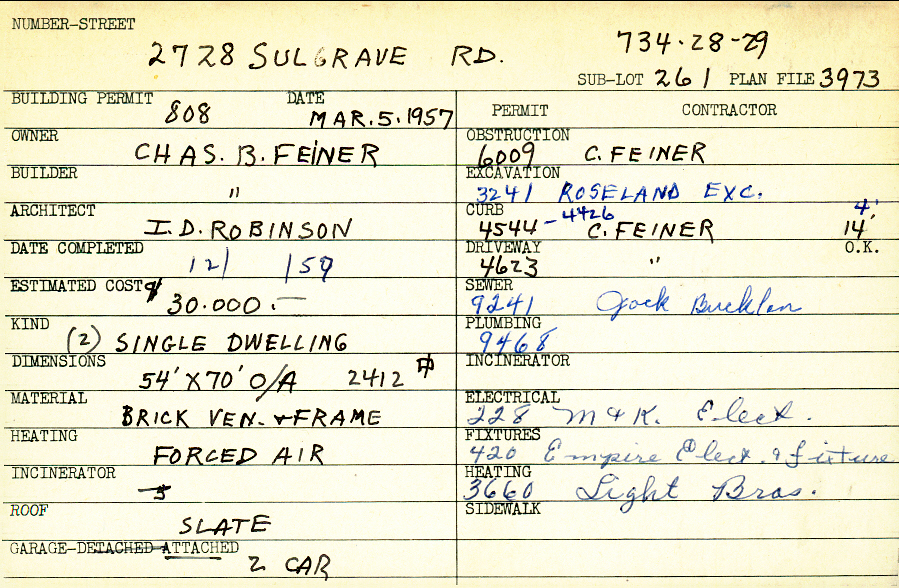 NUMBER-STREET
2728 SULGRAVE RD. 734-28-29
SUB-LOT 261 PLAN FILE 3973
BUILDING PERMIT 808 DATE MAR. 5. 1957
OWNER
CHAS. B. FEINER
BUILDER
"
ARCHITECT
I. D. ROBINSON
DATE COMPLETED
12/ /59
ESTIMATED COST $
30.000.—
KIND
(2) SINGLE DWELLING
DIMENSIONS
54' X 70' O/A 2412
MATERIAL
BRICK VEN. & FRAME
HEATING
FORCED AIR
INCINERATOR
ROOF
SLATE
GARAGE-DETACHED-ATTACHED
2 CAR
PERMIT CONTRACTOR
OBSTRUCTION
6009 C. FEINER
EXCAVATION
3241 ROSELAND EXC.
CURB 4'
4544 - 4426 C. FEINER 14'
DRIVEWAY O.K.
4623 "
SEWER
9241 Jack
PLUMBING
9468
INCINERATOR
ELECTRICAL
228 M & K. Elect.
FIXTURES
420 Empire Elect. & fixture
HEATING
3660 Light Bros.
SIDEWALK